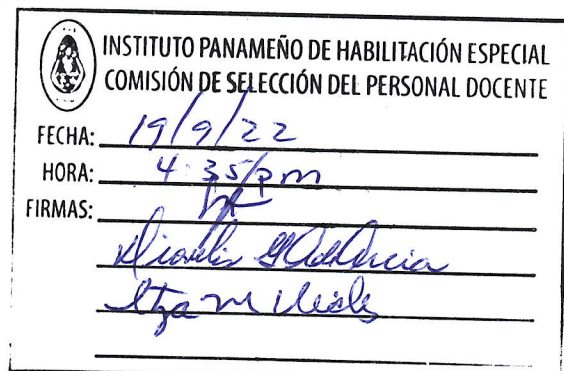 INSTITUTO PANAMEÑO DE HABILITACIÓN ESPECIAL
COMISIÓN DE SELECCIÓN DEL PERSONAL DOCENTE
FECHA: 19/9/22
HORA: 4:35pm
FIRMAS:
Itza M